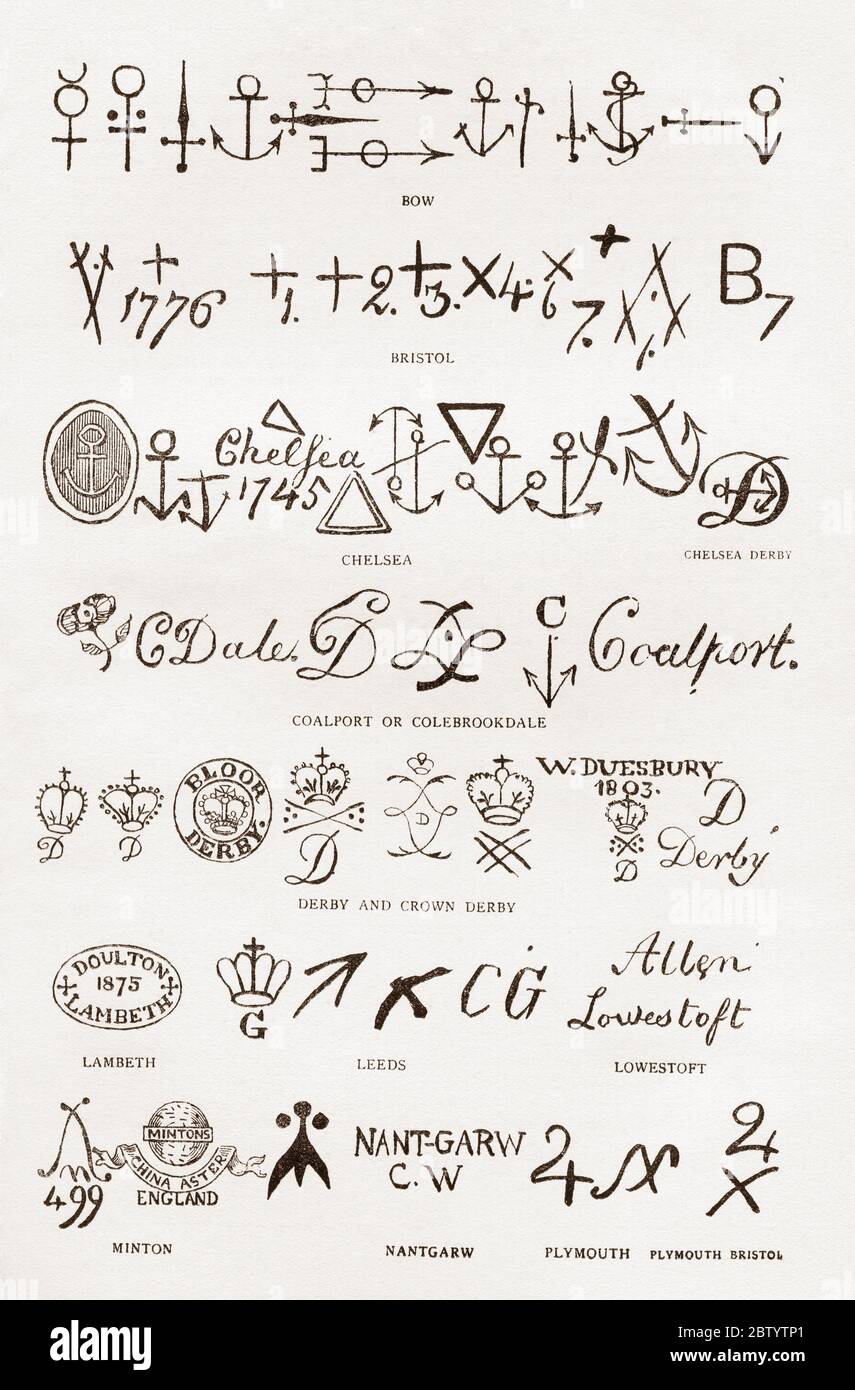 BOW
1776 1. 2. 3. 4. 6 7. 1. B7
BRISTOL
Chelsea
1745
D
CHELSEA
CHELSEA DERBY
CDale. CD C Coalport.
COALPORT OR COLEBROOKDALE
D D BLOOR DERBY. D D W. DUESBURY
1803.
D
D
Derby
DERBY AND CROWN DERBY
DOULTON
1875
LAMBETH
G
C G
Allen
Lowestoft
LAMBETH
LEEDS
LOWESTOFT
499
MINTONS
CHINA ASTER
ENGLAND
NANT-GARW
C. W
MINTON
NANTGARW
PLYMOUTH
PLYMOUTH BRISTOL
alamy
Image ID: 2BTYTP1
www.alamy.com